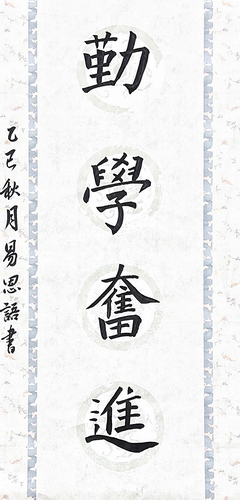 勤學奮進
乙巳秋月易思語書